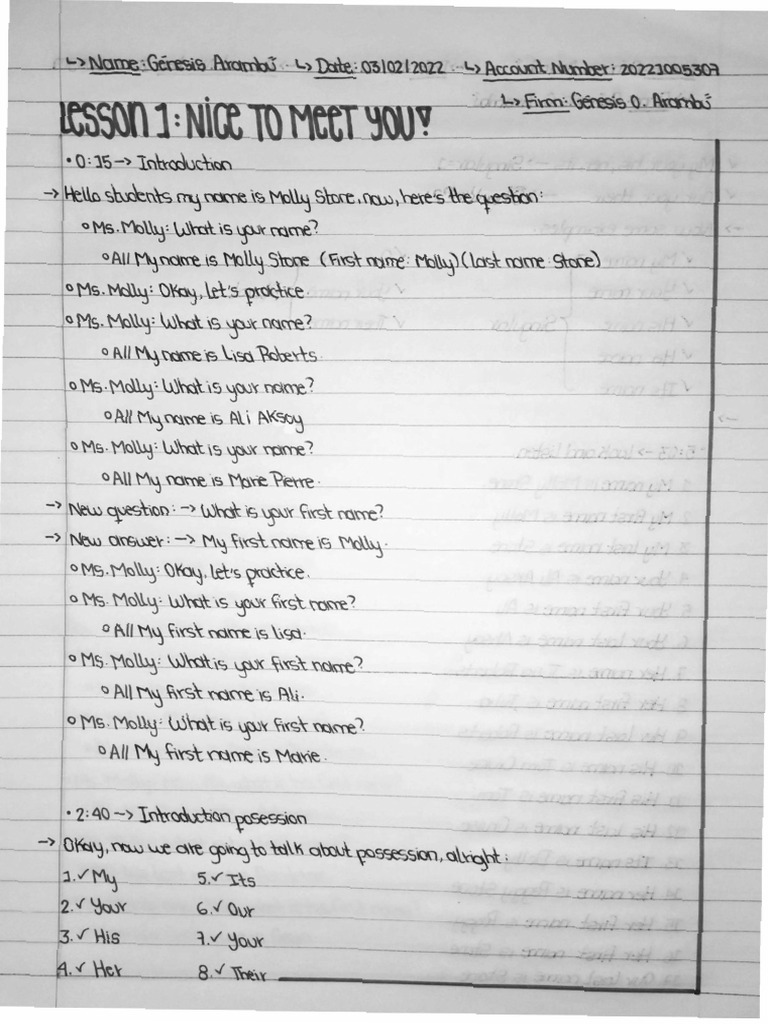 ↳ Name: Génesis Arambú ↳ Date: 03/02/2022 ↳ Account Number: 20221005307
↳ Firm: Génesis O. Arambú
Lesson 1: Nice to meet you!
• 0:15 → Introduction
→ Hello students my name is Molly Stone, now, here's the question:
○ Ms. Molly: What is your name?
○ All My name is Molly Stone (First name: Molly) (last name: Stone)
○ Ms. Molly: Okay, let's practice.
○ Ms. Molly: What is your name?
○ All My name is Lisa Roberts.
○ Ms. Molly: What is your name?
○ All My name is Ali Aksoy
○ Ms. Molly: What is your name?
○ All My name is Marie Pierre.
→ New question: → What is your first name?
→ New answer: → My first name is Molly.
○ Ms. Molly: Okay, let's practice.
○ Ms. Molly: What is your first name?
○ All My first name is lisa.
○ Ms. Molly: What is your first name?
○ All My first name is Ali.
○ Ms. Molly: What is your first name?
○ All My first name is Marie.
• 2:40 → Introduction posession
→ Okay, now we are going to talk about possession, alright:
1. ✓ My 5. ✓ Its
2. ✓ Your 6. ✓ Our
3. ✓ His 7. ✓ Your
4. ✓ Her 8. ✓ Their